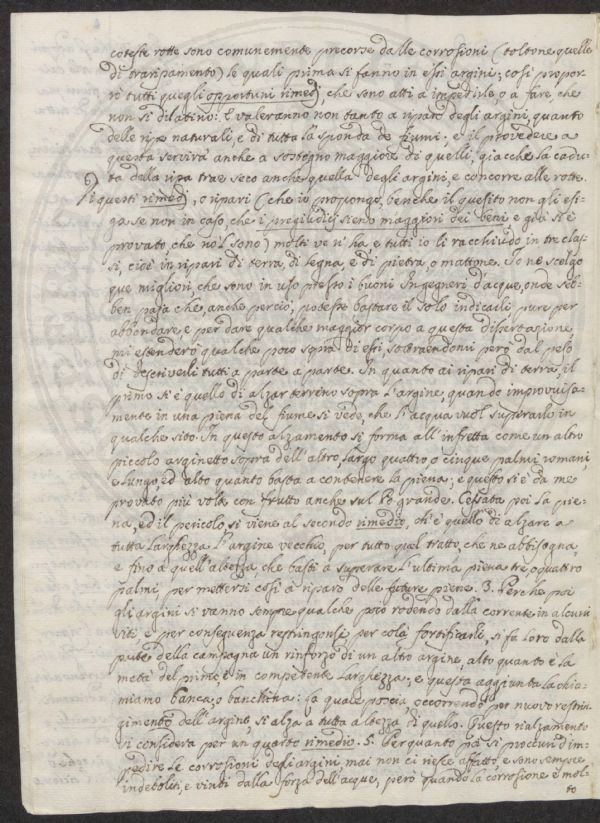 coteste rotte sono comunemente precorse dalle corrosioni (toltone quelle
di traripamento) le quali prima si fanno in essi argini; così propor-
rò tutti quegli opportuni rimedj, che sono atti a impedirle o a fare, che
non si dilatino: E valeranno non tanto a riparo degli argini, quanto
delle ripe naturali, e di tutta la sponda de fiumi: e il provedere a
questa servirà anche a sostegno maggiore di quelli, giacche la cadu-
ta della ripa trae seco anche quella degli argini, e concorre alle rotte.
Di questi rimedj, o ripari (che io propongo, benche il quesito non gli esi-
ga se non in caso, che i pregiudicj sieno maggiori dei beni e già si è
provato, che nol sono) molti ve n'ha, e tutti io li racchiudo in tre clas-
si, cioè in ripari di terra, di legna, e di pietra, o mattone. Io ne scelgo
que migliori, che sono in uso presso i buoni Ingegneri d'acque, onde seb-
ben paja che, anche perciò, potesse bastare il solo indicarli, pure per
abbondare, e per dare qualche maggior corpo a questa dissertazione
mi estenderò qualche poco sopra di essi, sottraendomi però dal peso
di descriverli tutti a parte a parte. In quanto ai ripari di terra, il
primo si è quello di alzar terreno sopra l'argine, quando improvvisa-
mente in una piena del fiume si vede, che l'acqua vuol superarlo in
qualche sito. In questo alzamento si forma all'infretta come un altro
piccolo arginetto sopra dell'altro, largo quattro o cinque palmi romani,
e lungo, ed alto quanto basta a contenere la piena; e questo si è da me
provato più volte con frutto anche sul Pò grande. Cessata poi la pie-
na, ed il pericolo, si viene al secondo rimedio, ch'è quello di alzare a
tutta larghezza l'argine vecchio, per tutto quel tratto, che ne abbisogna,
e fino a quell'altezza, che basti a superare l'ultima piena tre, o quattro
palmi, per mettersi così a riparo delle future piene. 3. Perche poi
gli argini si vanno sempre qualche poco rodendo dalla corrente in alcuni
siti e per conseguenza restringonsi per colà fortificarli, si fa loro dalla
parte della campagna un rinforzo di un altro argine, alto quanto è la
metà del primo, e in competente larghezza; e questa aggiunta la chia-
miamo banca, o banchina: la quale poscia occorrendo per nuovo restrin-
gimento dell'argine, si alza a tutta altezza di quello. Questo rialzamento
si considera per un quarto rimedio. 5. Perquanto poi si procuri d'im-
pedire le corrosioni degli argini, mai non ci riesce affatto, e sono sempre
indeboliti, e vinti dalla forza dell'acque, però quando la corrosione è mol-
to